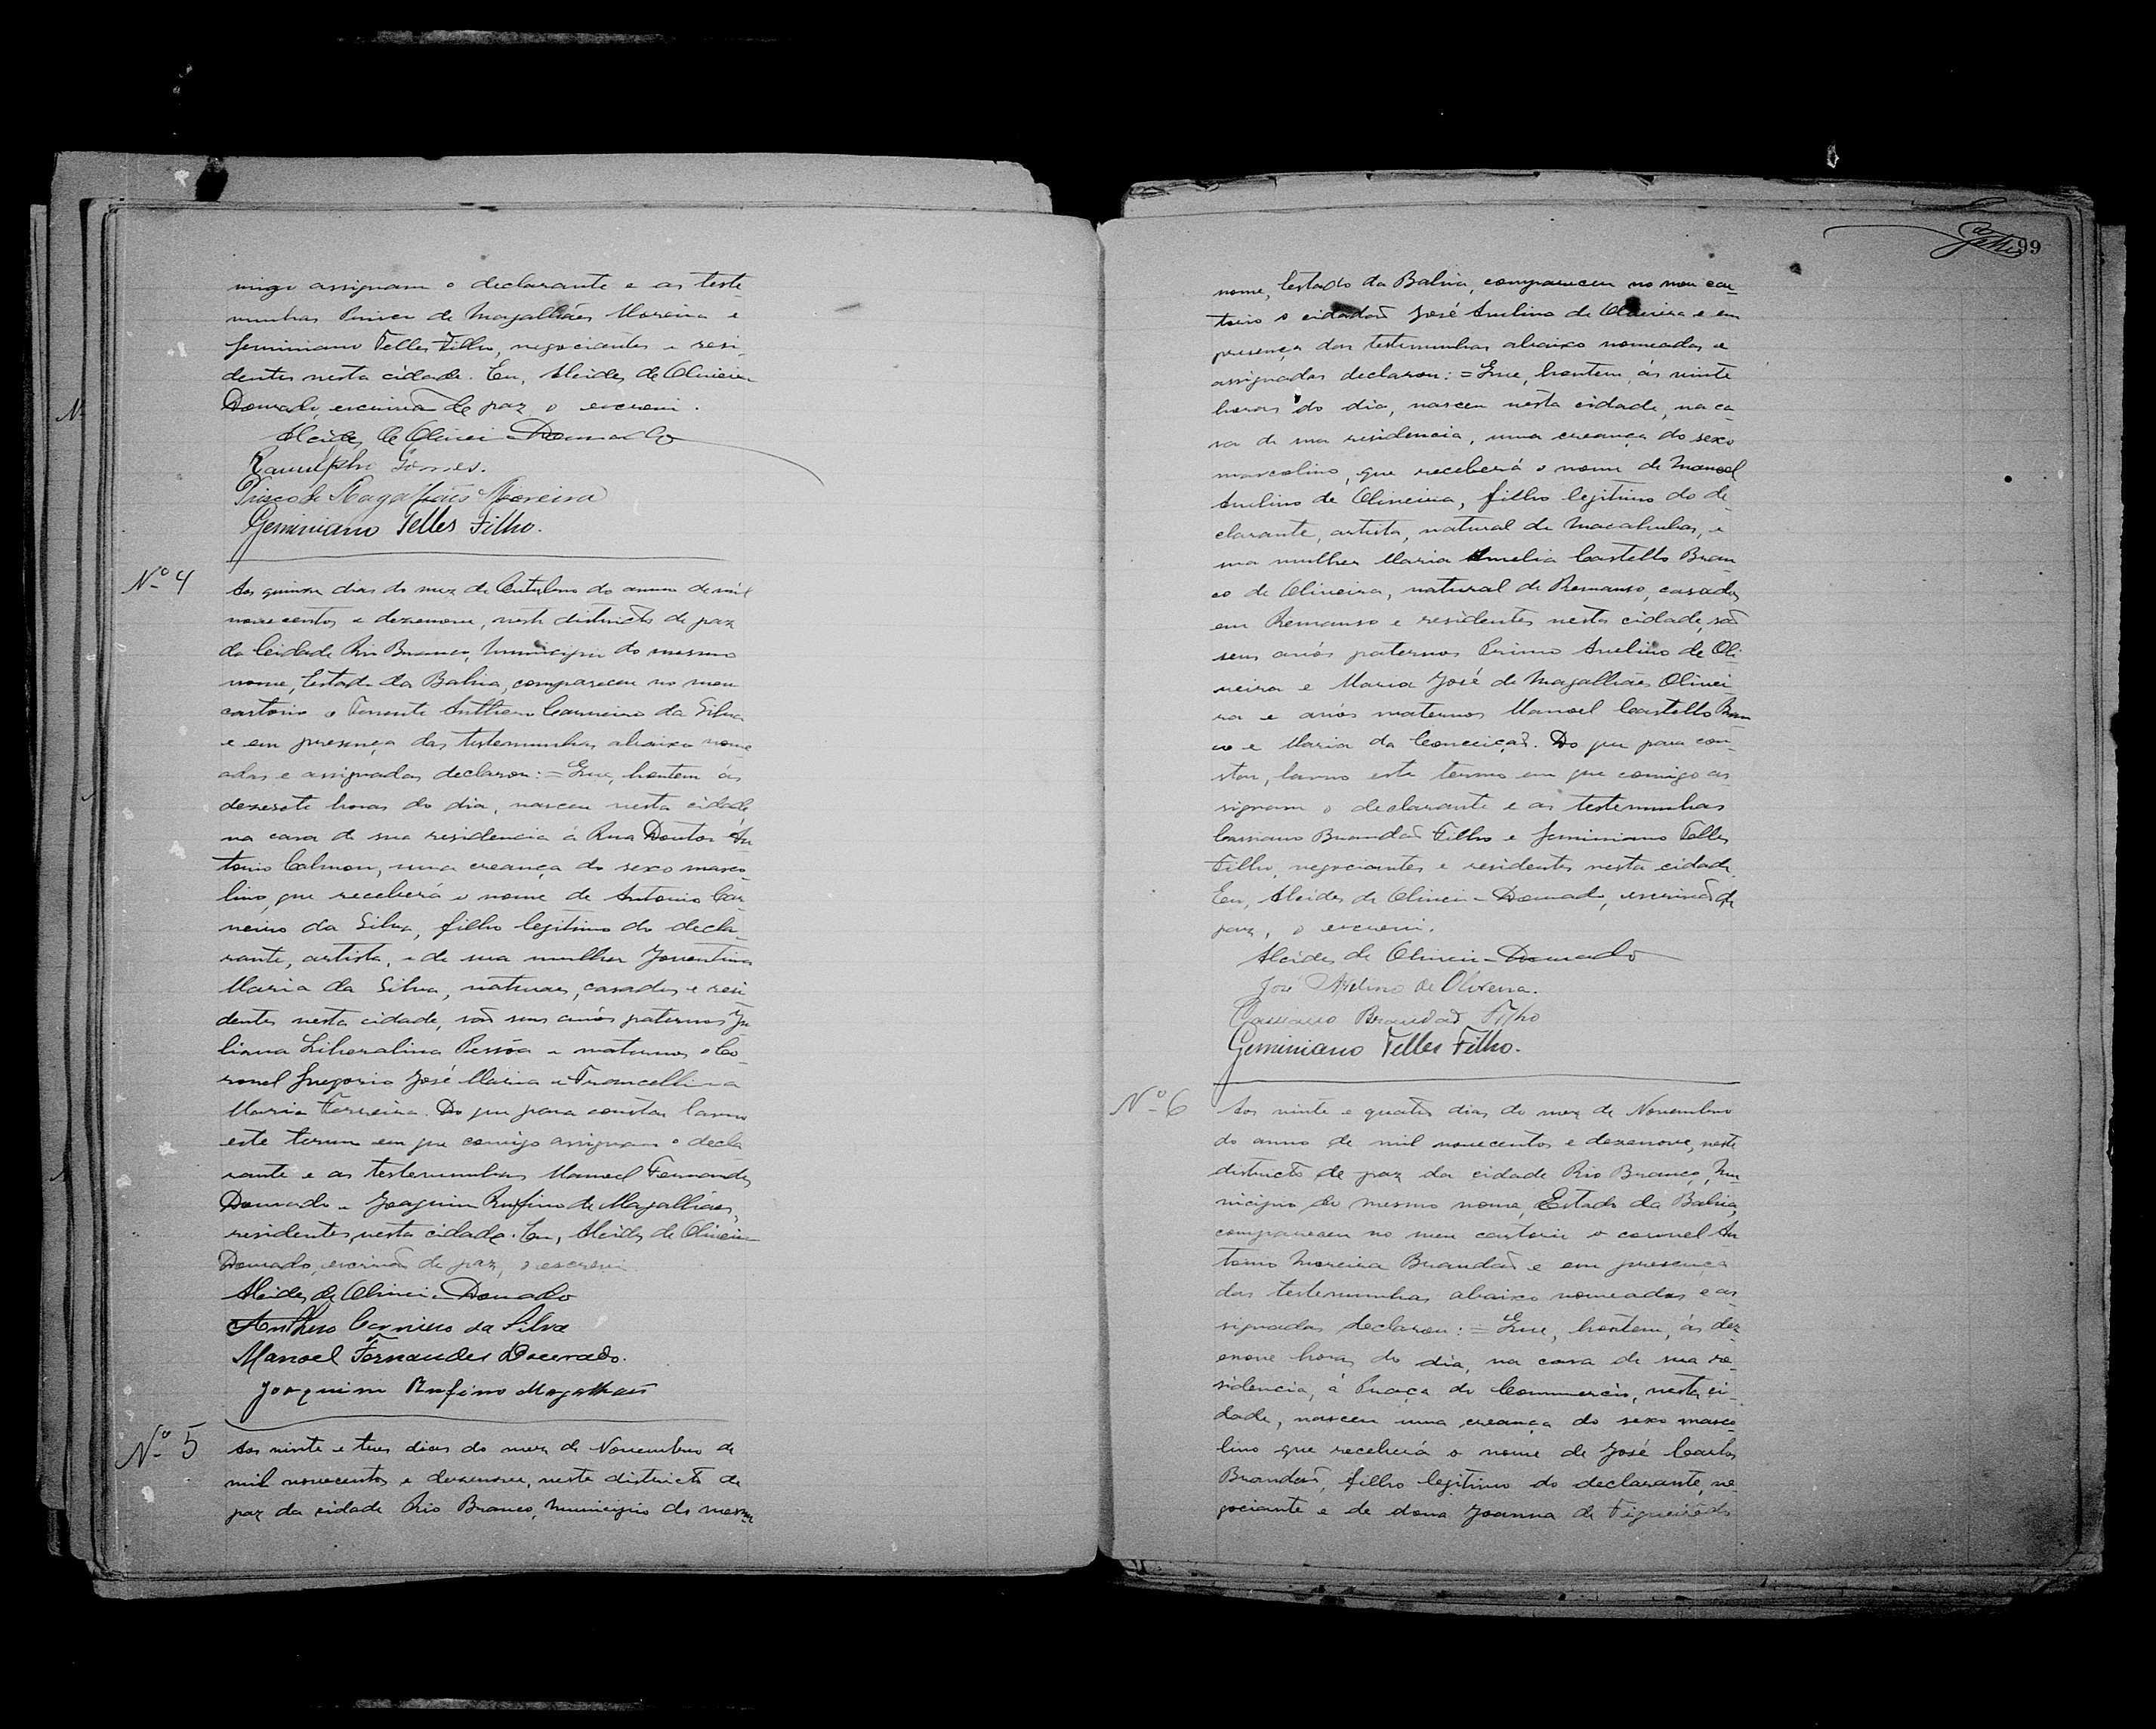 migo assignam o declarante e as teste
munhas Prisco de Magalhães Moreira e
Geminiano Telles Filho, negociantes e resi-
dentes nesta cidade. Eu, Alcides de Oliveira
Dourado, escrivão de paz o escrevi.
Alcides de Oliveira Dourado
Ranulpho Gomes.
Prisco de Magalhães Moreira
Geminiano Telles Filho.
Nº 4
Aos quinse dias do mez de Outubro do anno de mil
nove centos e dezenove, neste districto de paz
da Cidade Rio Branco, Municipio do mesmo
nome, Estado da Bahia, compareceu no meu
cartorio o Tenente Anthero Carneiro da Silva
e em presença das testemunhas abaixo nome
adas e assignadas declarou: = Que, hontem ás
dezesete horas do dia, nasceu nesta cidade,
na casa de sua residencia á Rua Doutor An
tonio Calmon, uma creança do sexo mascu-
lino, que receberá o nome de Antonio Car-
neiro da Silva, filho legitimo do decla-
rante, artista, e de sua mulher Jouentina
Maria da Silva, naturaes, casados e resi
dentes nesta cidade, são seus avós paternos Ju
liana Liberalina Pessôa e maternos o Co-
ronel Gregorio José Maria e Francellina
Maria Ferreira. Do que para constar lavro
este termo em que comigo assignam o decla
rante e as testemunhas Manoel Fernandes
Dourado e Joaquim Rufino de Magalhães,
residentes nesta cidade. Eu, Alcides de Oliveira
Dourado, escrivão de paz, o escrevi
Alcides de Oliveira Dourado
Anthero Carneiro da Silva
Manoel Fernandes Dourado.
Joaquim Rufino Magalhães
Nº 5
Aos vinte e tres dias do mez de Novembro de
mil novecentos e dezenove, neste districto de
paz da cidade Rio Branco, Municipio do mesmo
99
nome, Estado da Bahia, compareceu no meu car-
torio o cidadão José Avelino de Oliveira e em
presença das testemunhas abaixo nomeadas e
assignadas declarou: = Que, hontem, ás vinte
horas do dia, nasceu nesta cidade, na ca
sa de sua residencia, uma creança do sexo
masculino, que receberá o nome de Manoel
Avelino de Oliveira, filho legitimo do de-
clarante, artista, natural de Macahubas, e
sua mulher Maria Amelia Castello Bran-
co de Oliveira, natural de Remanso, casados
em Remanso e residentes nesta cidade, são
seus avós paternos Primo Avelino de Oli-
veira e Maria José de Magalhães Olivei-
ra e avós maternos Manoel Castello Bran
co e Maria da Conceição. Do que para con-
star, lavro este termo em que comigo as
signam o declarante e as testemunhas
Cassiano Brandão Filho e Geminiano Telles
Filho, negociantes e residentes nesta cidade.
Eu, Alcides de Oliveira Dourado, escrivão de
paz, o escrevi.
Alcides de Oliveira Dourado
José Avelino de Oliveira.
Cassiano Brandão Filho
Geminiano Telles Filho.
Nº 6
Aos vinte e quatro dias do mez de Novembro
do anno de mil novecentos e dezenove, neste
districto de paz da cidade Rio Branco, Mu
nicipio do mesmo nome, Estado da Bahia,
compareceu no meu cartorio o coronel An
tonio Moreira Brandão e em presença
das testemunhas abaixo nomeadas e as
signadas declarou: = Que, hontem, ás dez
enove horas do dia, na casa de sua re-
sidencia, á Praça do Commercio, nesta ci-
dade, nasceu uma creança do sexo mascu
lino que receberá o nome de José Carlos
Brandão, filho legitimo do declarante, ne-
gociante e de dona Joanna de Figueirêdo